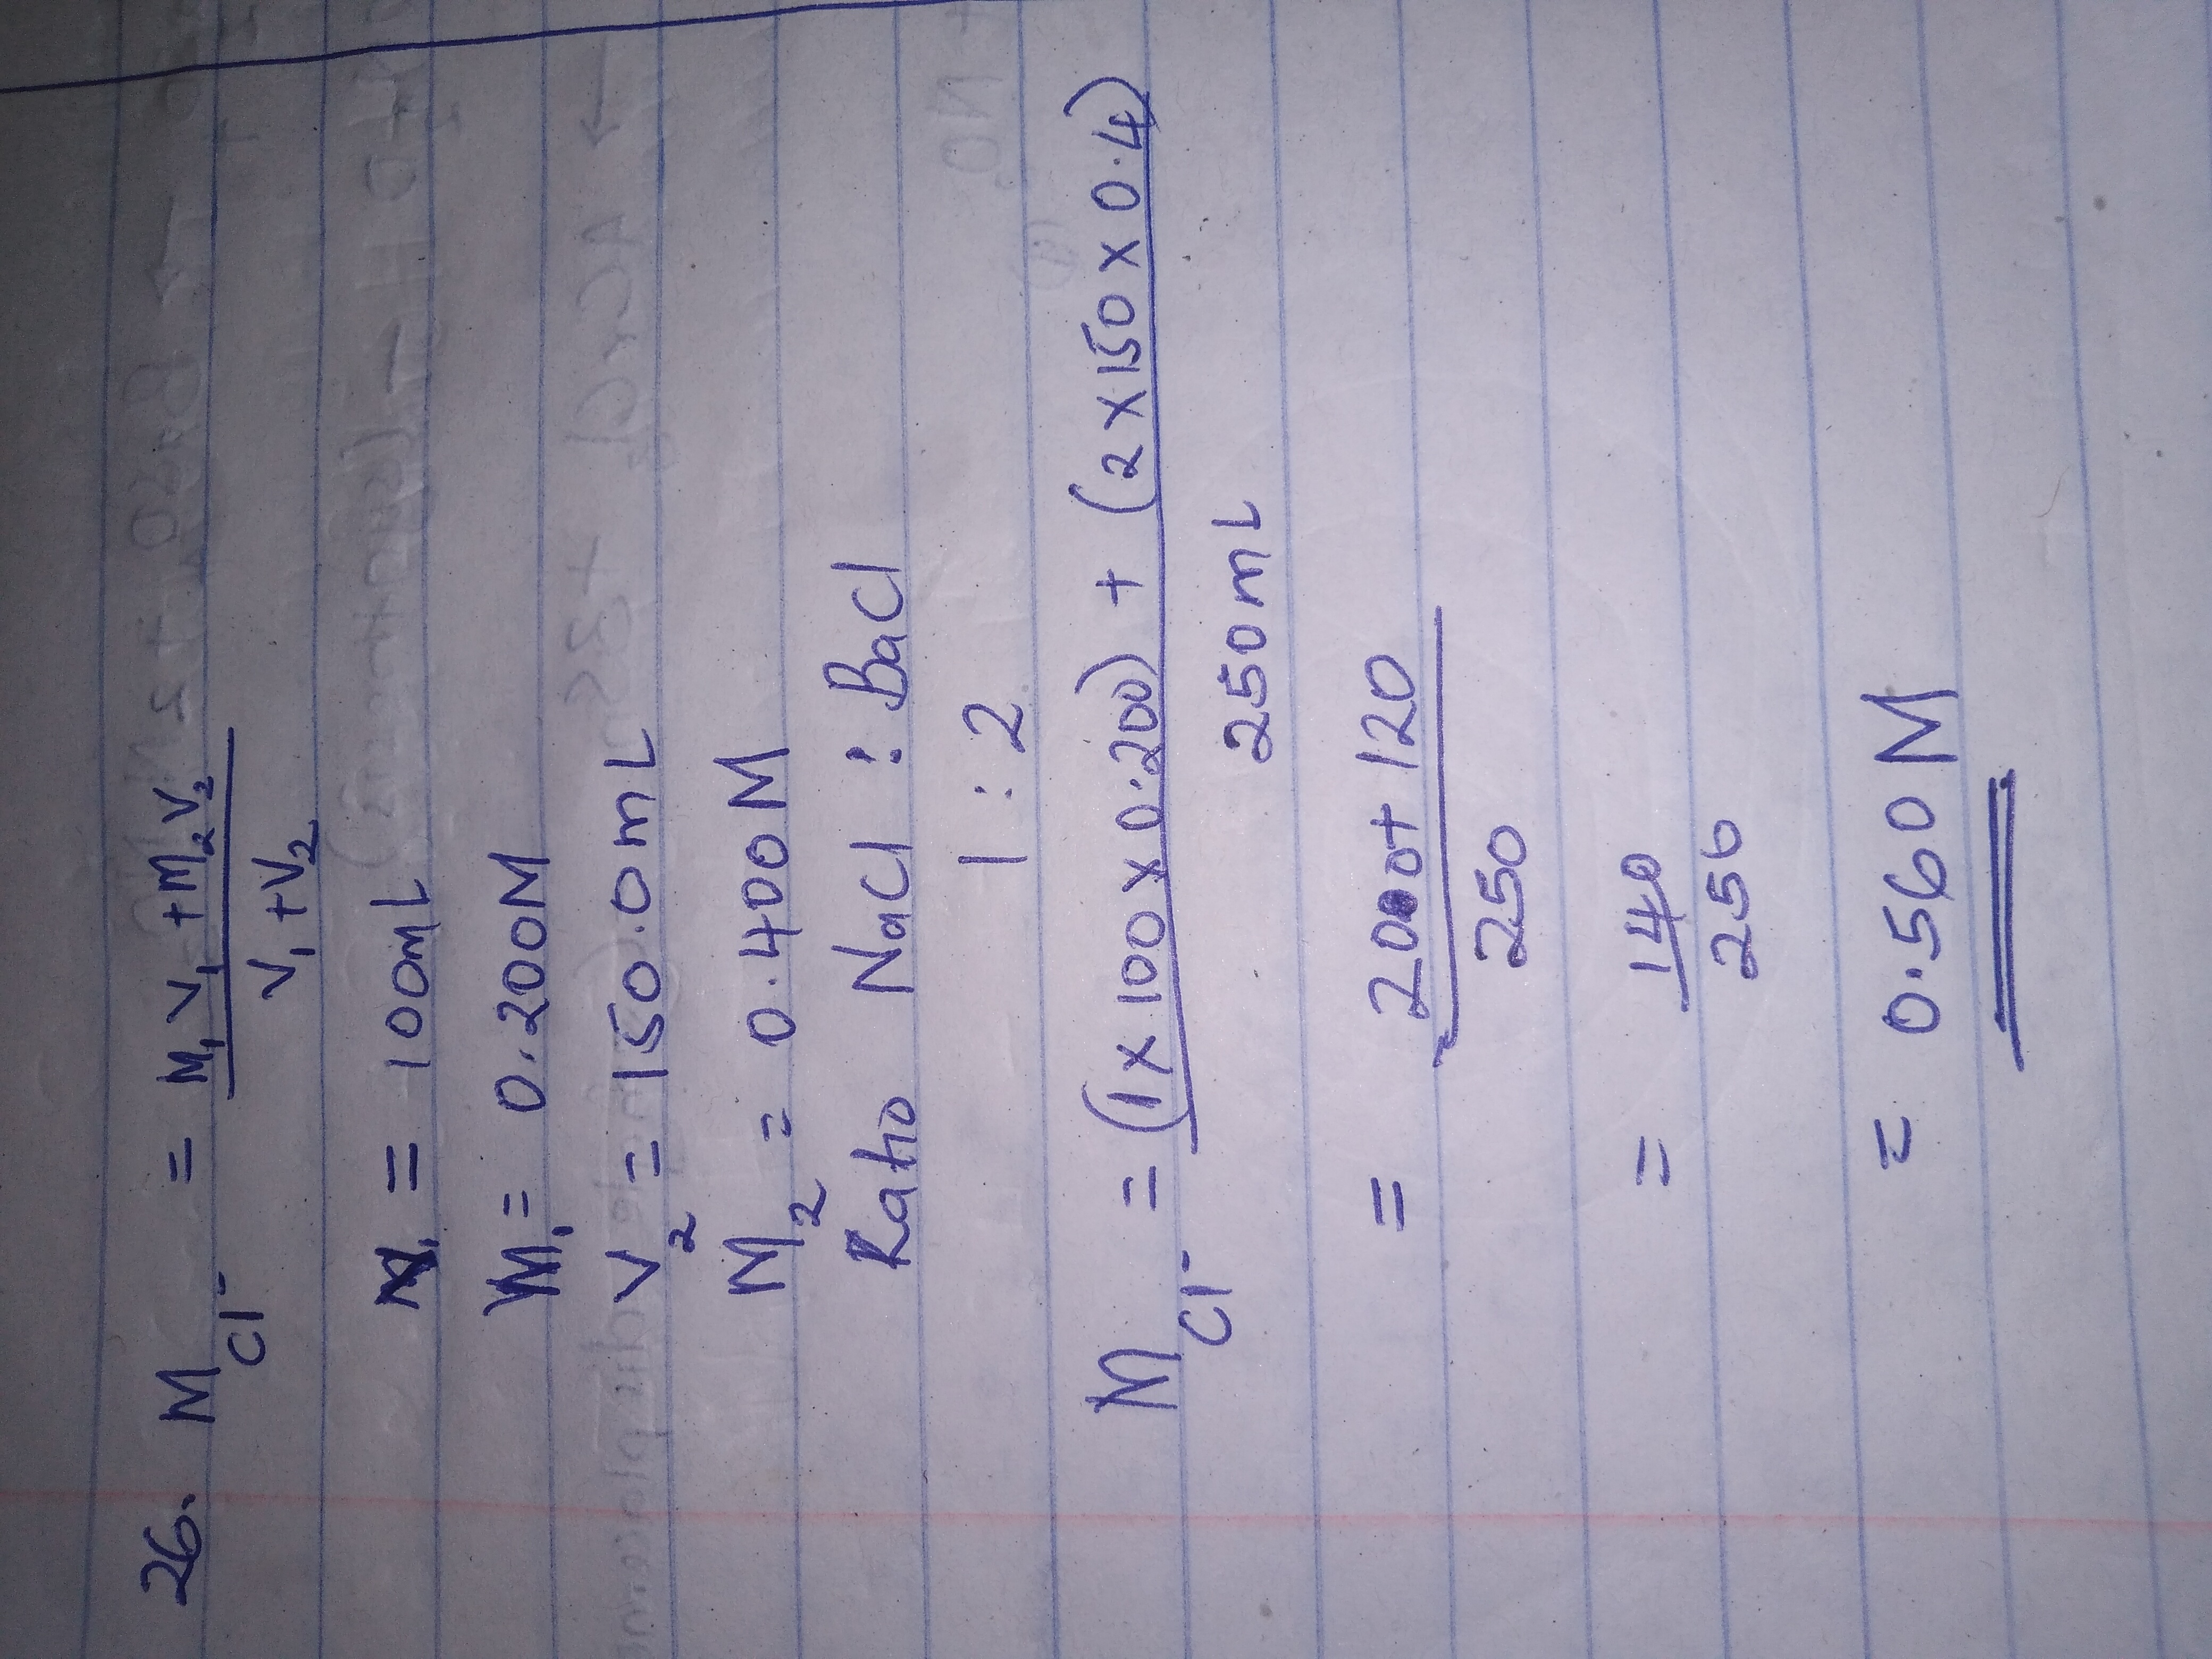 26. M = M₁V₁ + M₂V₂
Cl⁻ V₁+V₂
V₁ = 100mL
M₁ = 0.200M
V₂ = 150.0mL
M₂ = 0.400M
Ratio NaCl : BaCl
1 : 2
M = (1 x 100 x 0.200) + (2 x 150 x 0.4)
Cl⁻ 250mL
= 20.0+120
250
= 140
250
= 0.560M